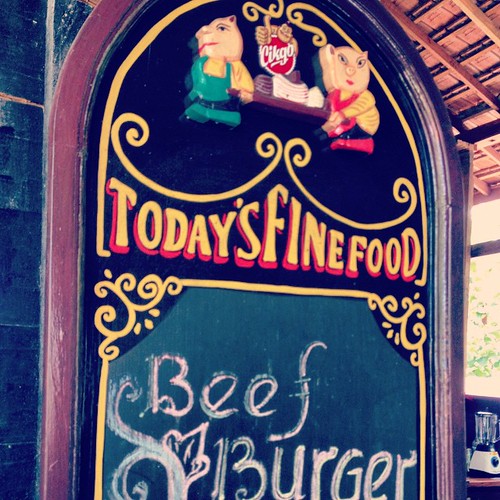 Cikgo
TODAY'S FINE FOOD
Beef
Burger